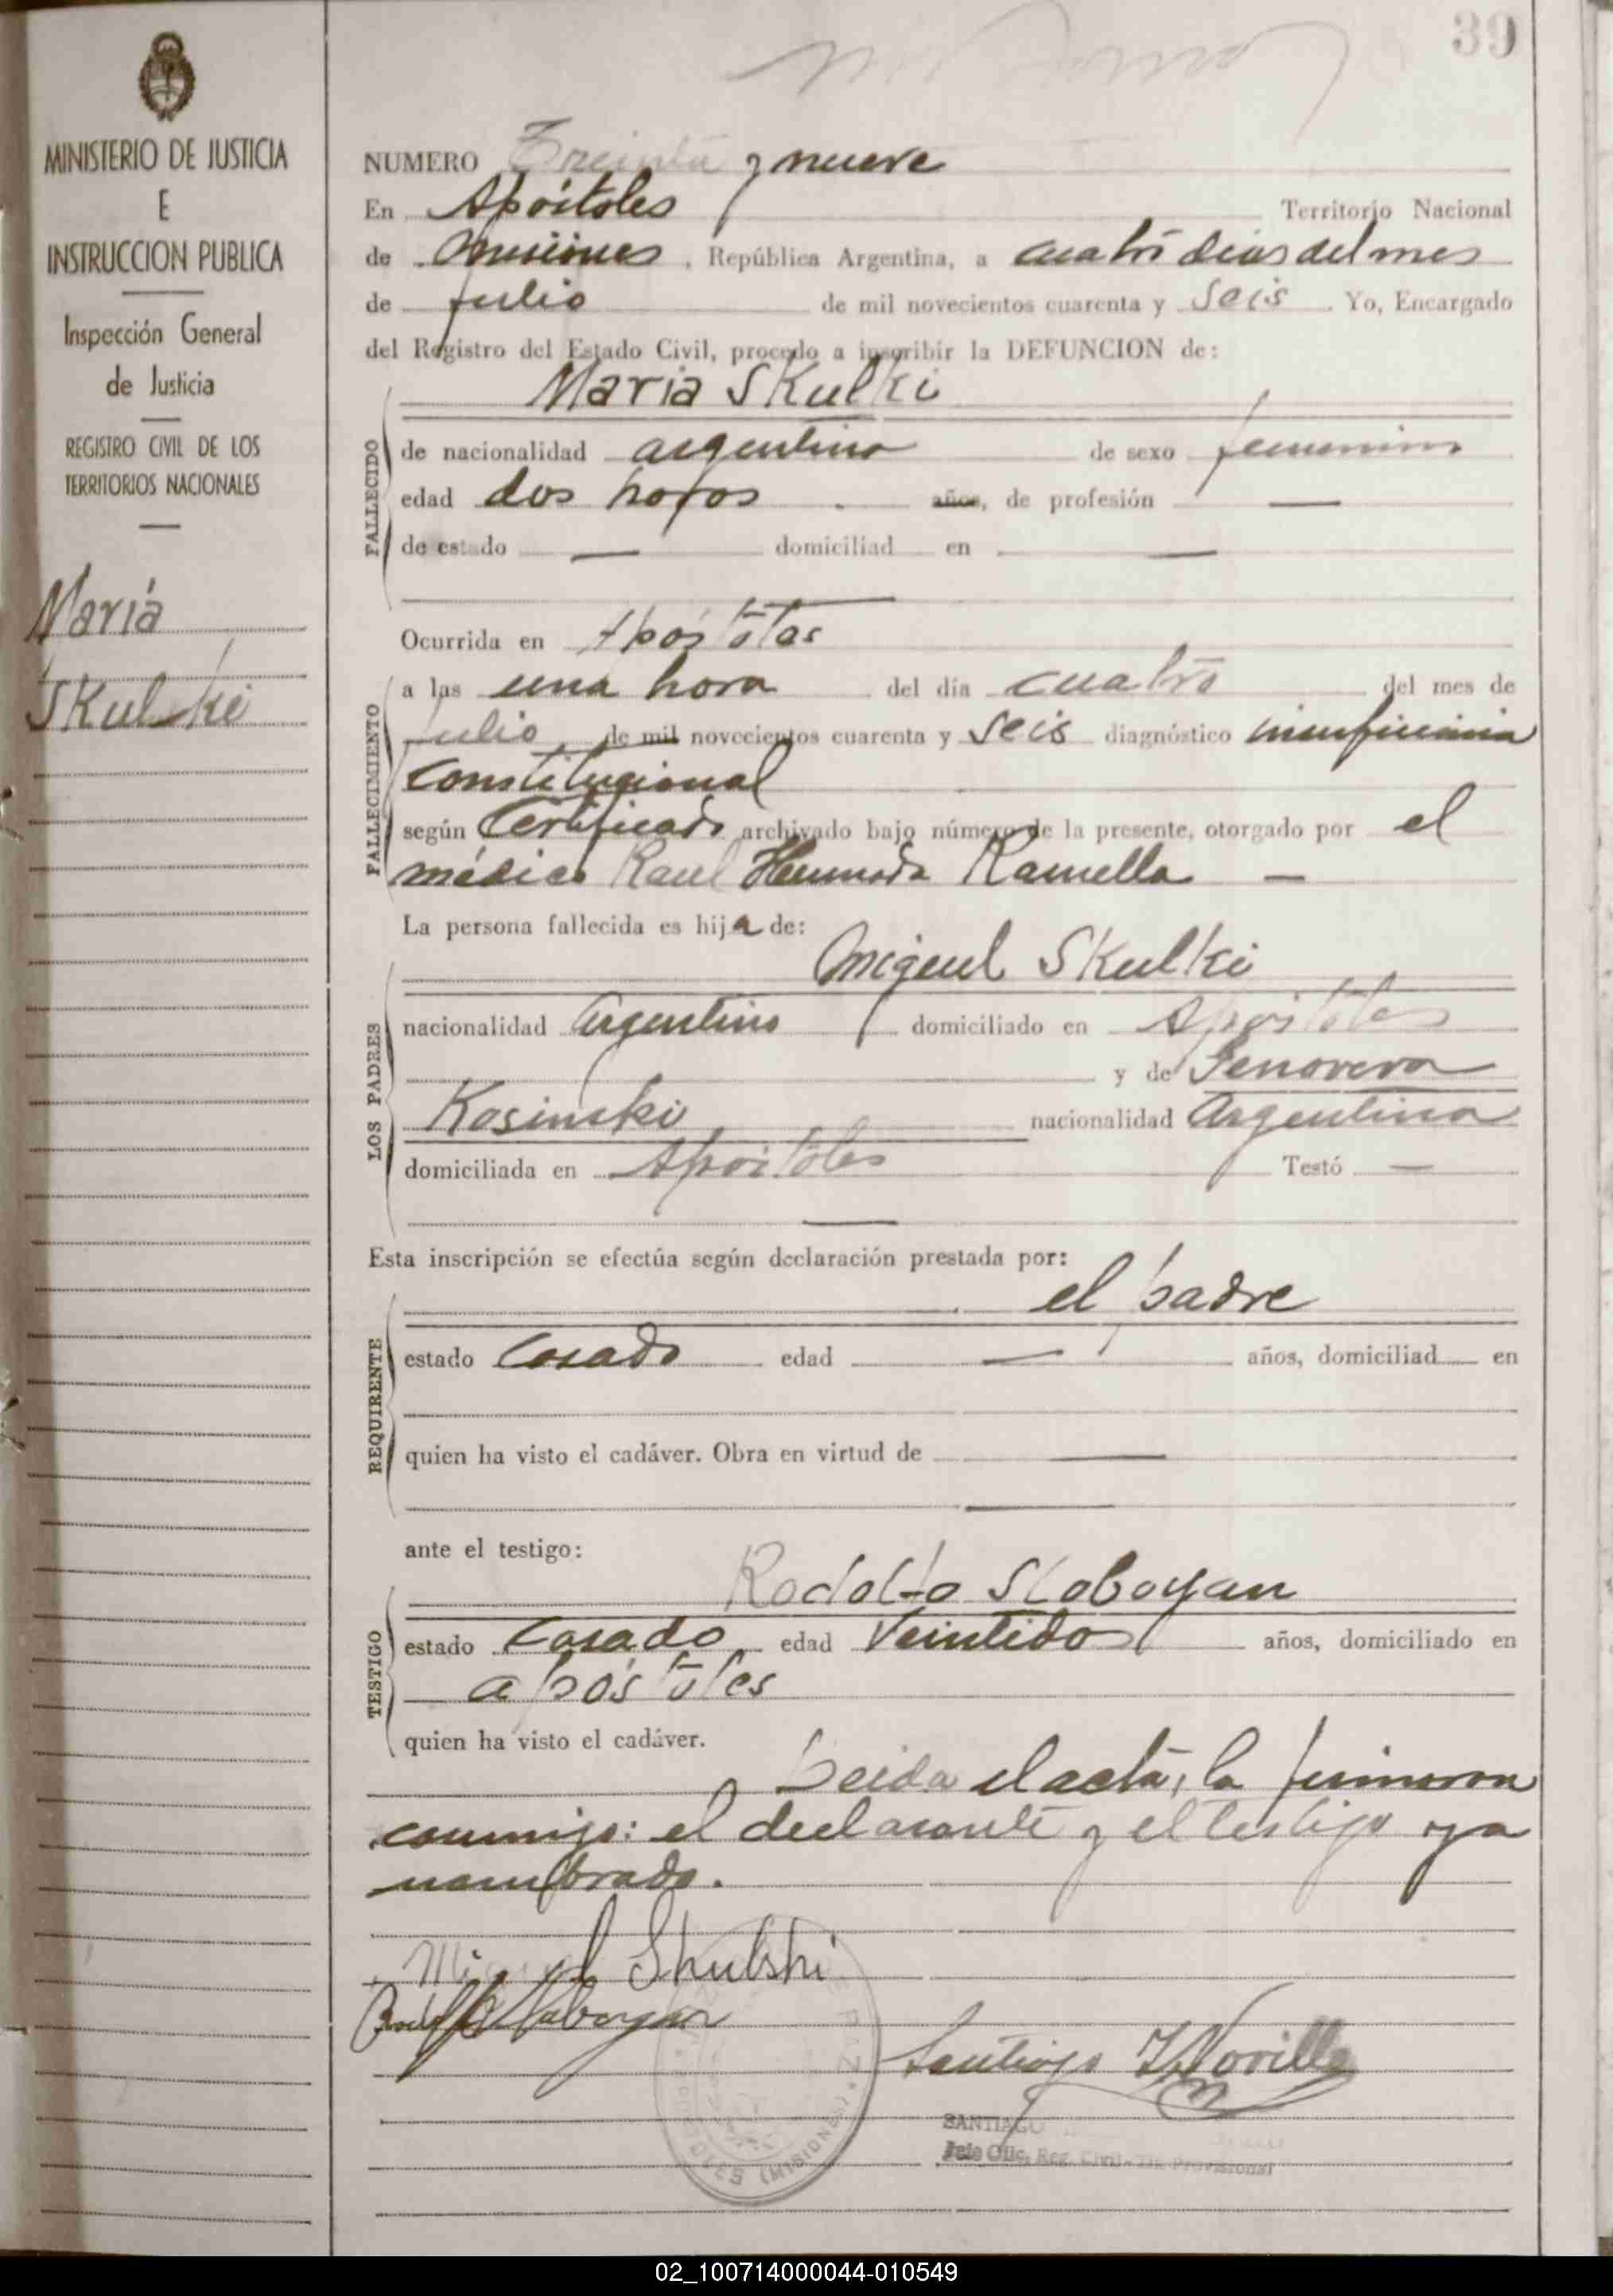 39
MINISTERIO DE JUSTICIA
E
INSTRUCCION PUBLICA
Inspección General
de Justicia
REGISTRO CIVIL DE LOS
TERRITORIOS NACIONALES
María
Skulski
NUMERO Treinta y nueve
En Apóstoles Territorio Nacional
de Misiones, República Argentina, a cuatro dias del mes
de Julio de mil novecientos cuarenta y seis. Yo, Encargado
del Registro del Estado Civil, procedo a inscribir la DEFUNCION de:
Maria Skulki
FALLECIDO
de nacionalidad argentina de sexo femenino
edad dos horas años, de profesión —
de estado — domiciliad en —
Ocurrida en Apóstoles
FALLECIMIENTO
a las una hora del día cuatro del mes de
Julio de mil novecientos cuarenta y seis diagnóstico insuficiencia
constitucional
según Certificado archivado bajo número de la presente, otorgado por el
médico Raul Ramella —
La persona fallecida es hija de:
Miguel Skulki
LOS PADRES
nacionalidad Argentino domiciliado en Apóstoles
y de Genoveva
Kosinski nacionalidad Argentina
domiciliada en Apóstoles Testó —
Esta inscripción se efectúa según declaración prestada por:
el padre
REQUIRENTE
estado Casado edad — años, domiciliad en
quien ha visto el cadáver. Obra en virtud de —
ante el testigo:
Rodolfo Sloboyan
TESTIGO
estado Casado edad Veintidos años, domiciliado en
apóstoles
quien ha visto el cadáver.
Leida el acta, la firmaron
conmigo: el declarante y el testigo ya
nombrado.
Miguel Skulski
Santiago
SANTIAGO
Jefe Ofic. Reg. Civil - Tit. Provisional
02_100714000044-010549